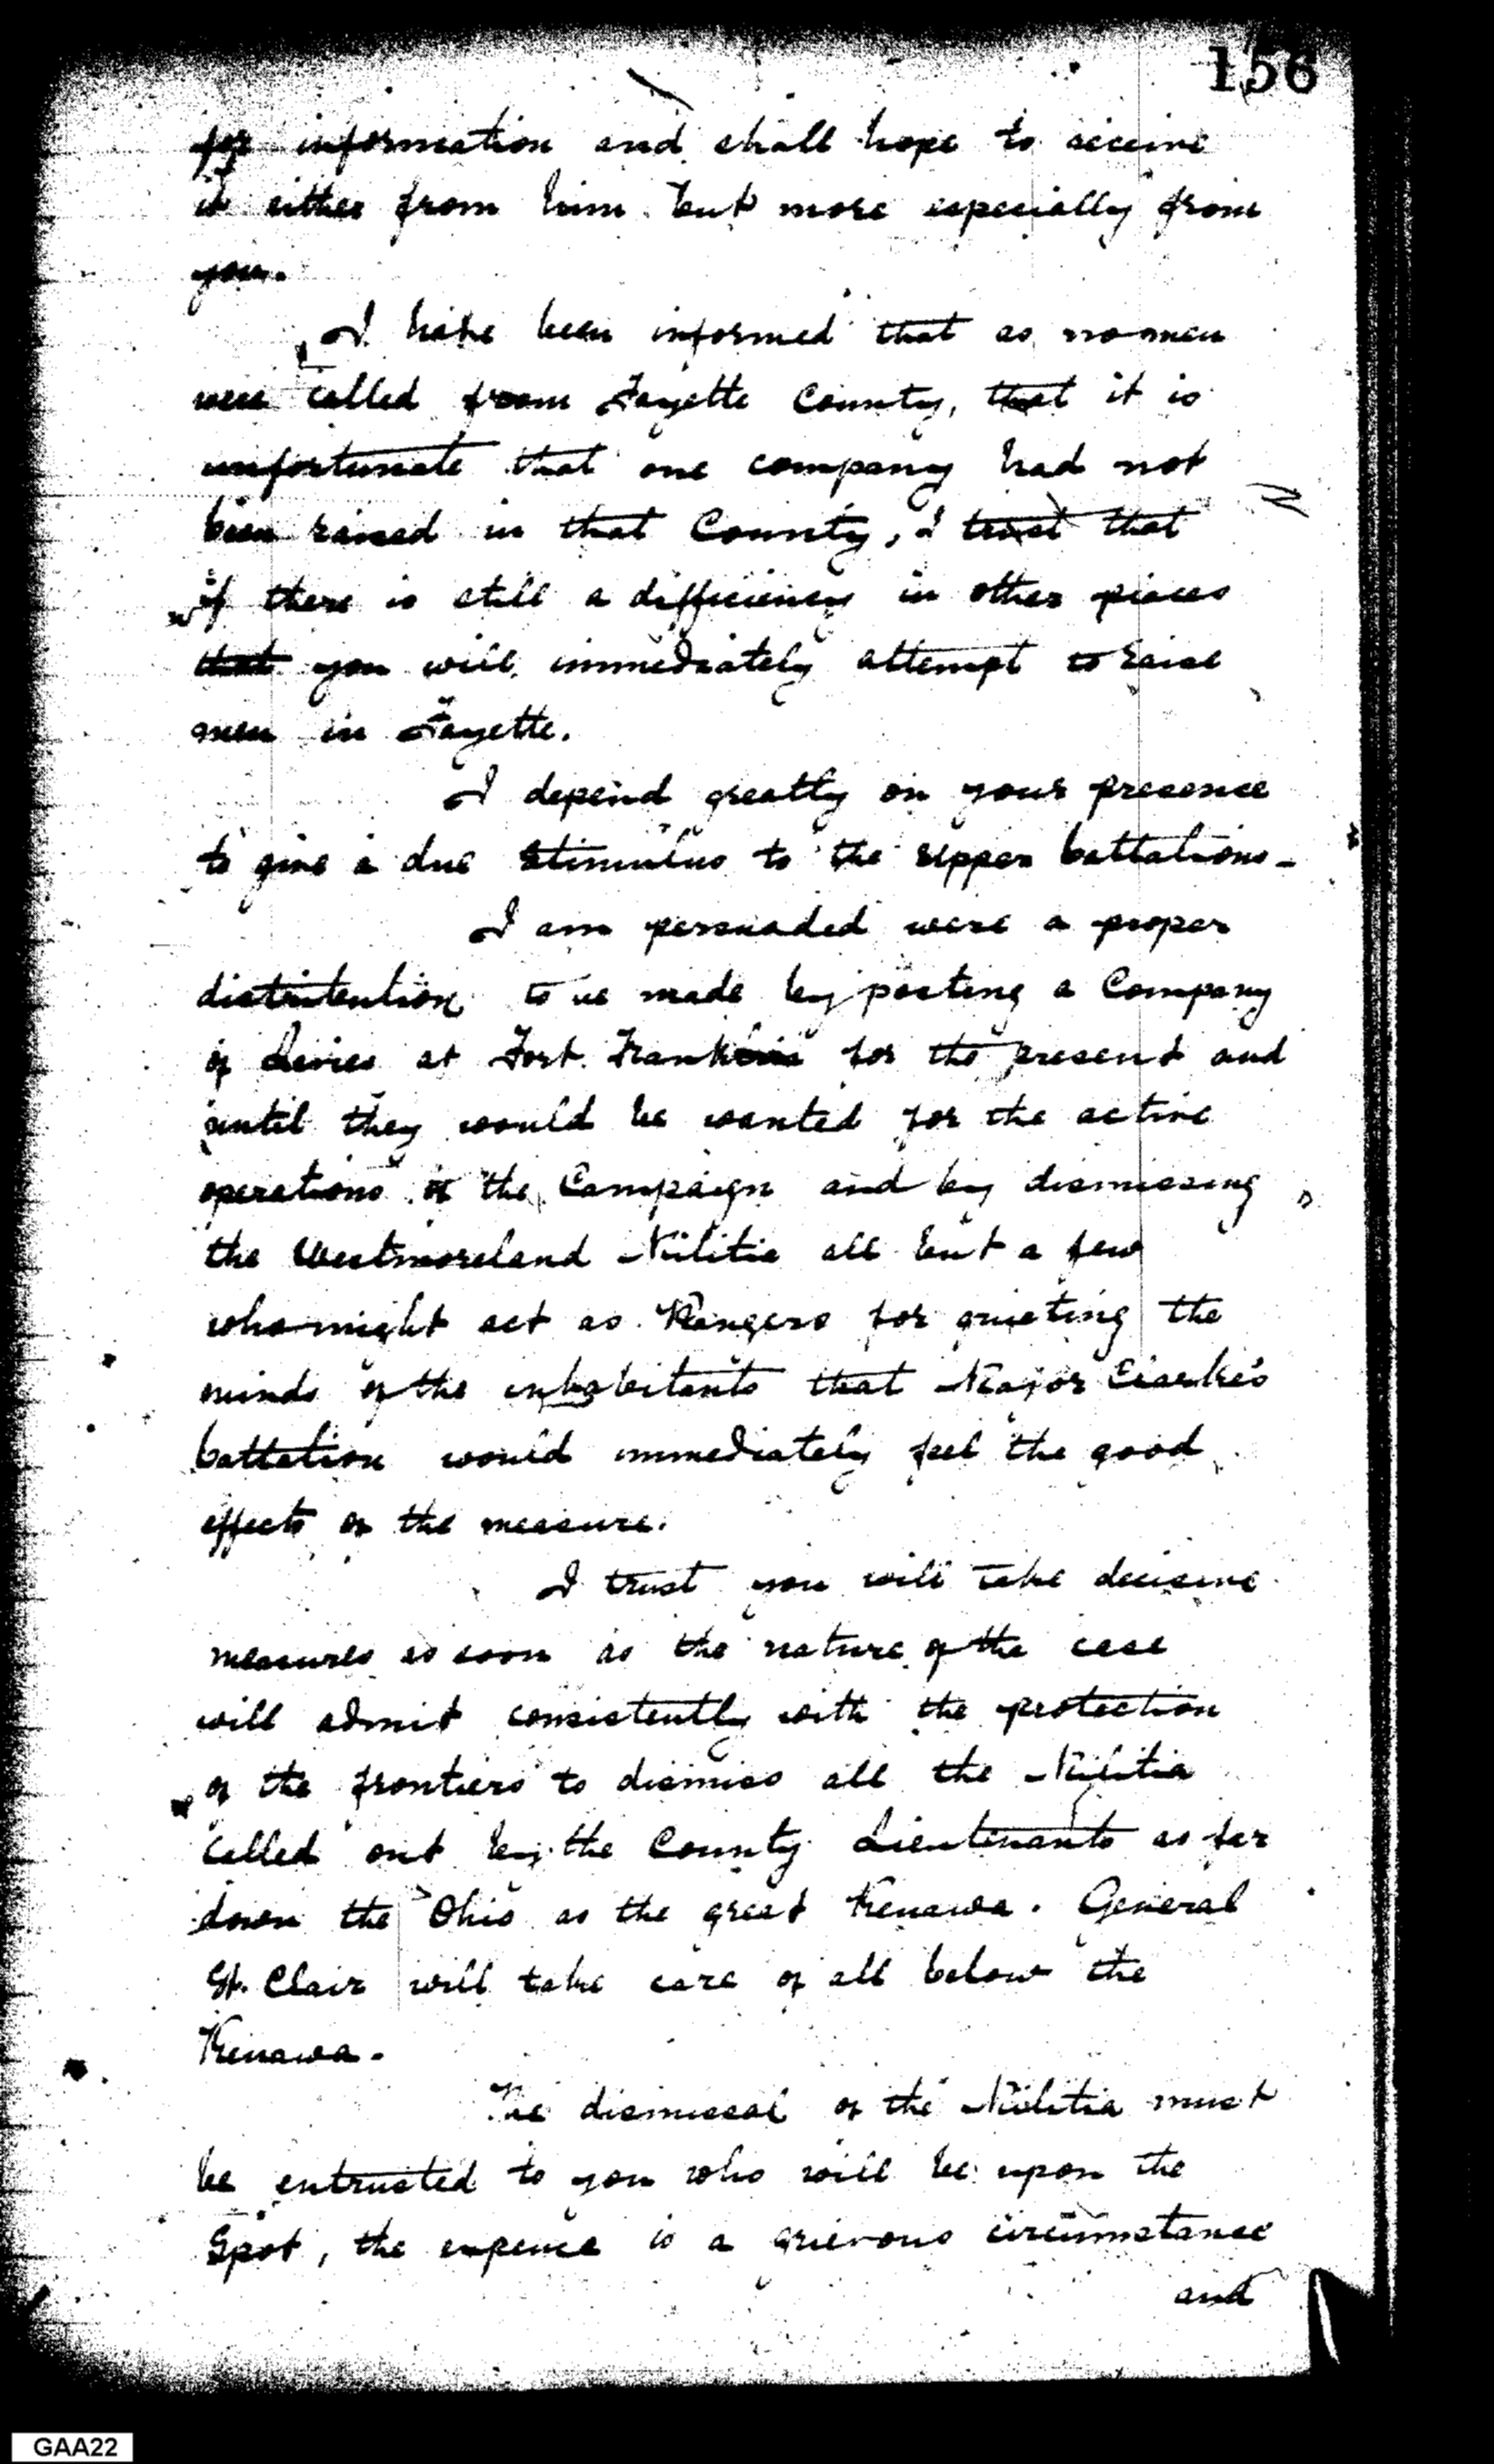 156
for information and shall hope to receive
it either from him but more especially from
you.
I have been informed that as no men
were called from Fayette County, that it is
unfortunate that one company had not
been raised in that County, I trust that
if there is still a difficiency in other places
that you will immediately attempt to raise
men in Fayette.
I depend greatly on your presence
to give a due stimulus to the upper battalions-
I am persuaded were a proper
distribution to be made by posting a Company
of Levies at Fort Franklin for the present and
until they would be wanted for the active
operations of the Campaign and by dismissing
the Westmoreland Militia all but a few
who might act as Rangers for quieting the
minds of the inhabitants that Major Clarke's
battalion would immediately feel the good
effects of the measure.
I trust you will take decisive
measures as soon as the nature of the case
will admit consistently with the protection
of the frontiers to dismiss all the Militia
called out by the County Lieutenants as far
down the Ohio as the great Kenawa. General
St. Clair will take care of all below the
Kenawa.
The dismissal of the Militia must
be entrusted to you who will be upon the
Spot, the expence is a grievous circumstance
and
GAA22